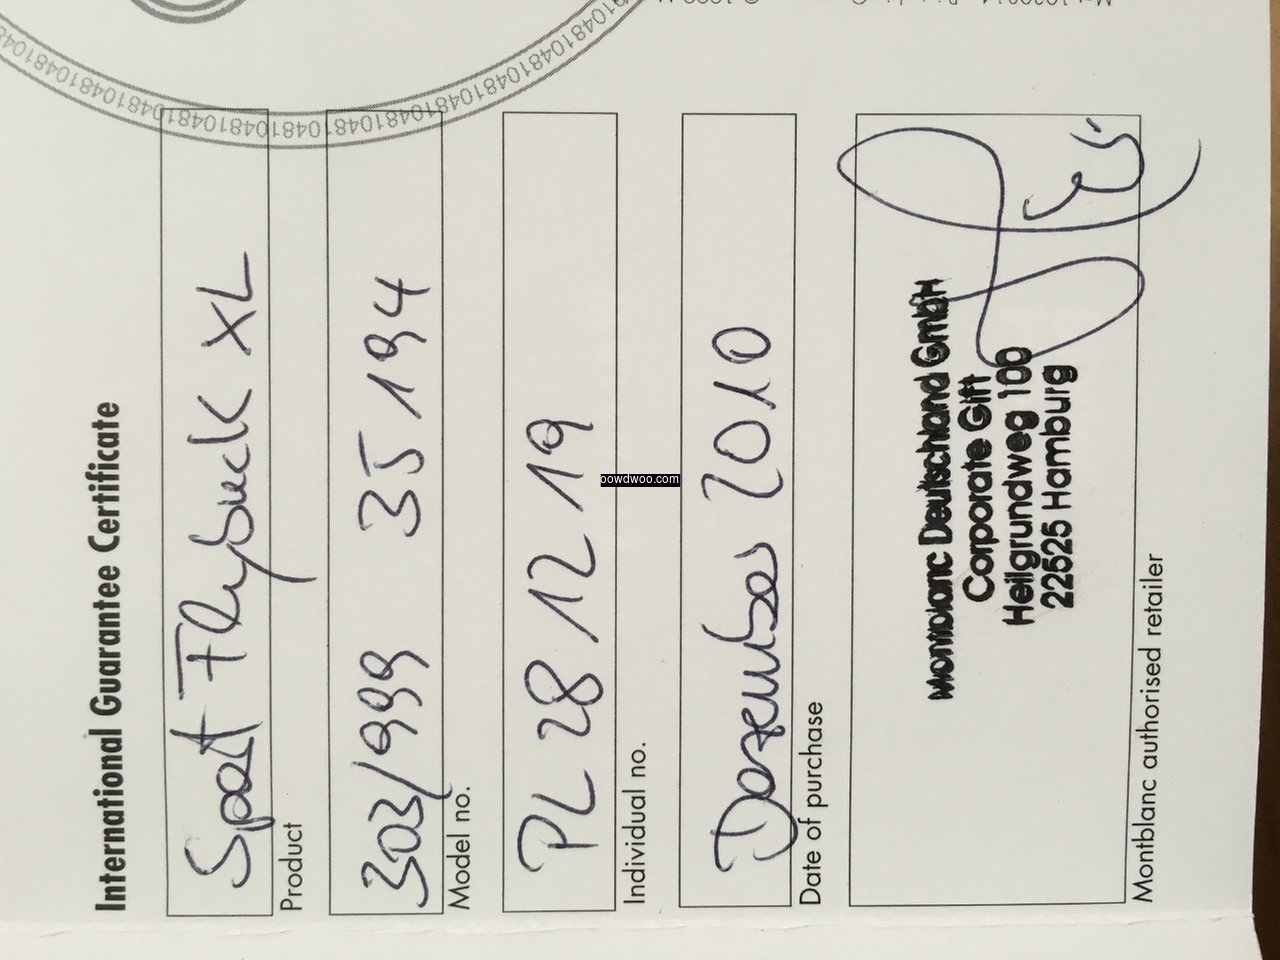 International Guarantee Certificate
Sport Flyback XL
Product
303/999 35194
Model no.
PL 28 12 19
Individual no.
Dezember 2010
Date of purchase
Montblanc Deutschland GmbH
Corporate Gift
Hellgrundweg 100
22525 Hamburg
Montblanc authorised retailer
oowdwoo.com
1048104810481048104810481048104810481048